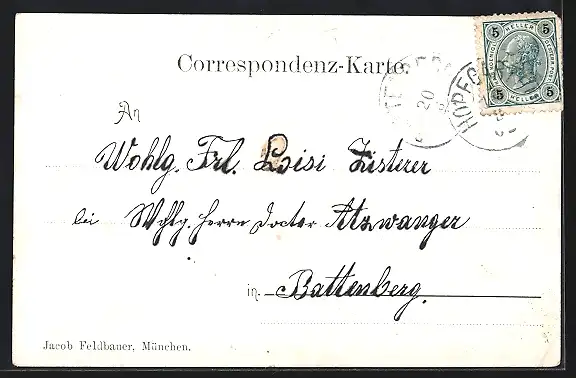 Correspondenz-Karte.
5 HELLER 5
5 HELLER 5
HOPFG
20
An
Wohlg. Frl. Loisi Zisterer
bei Wohlg. Herrn Doctor Atzwanger
in Battenberg.
Jacob Feldbauer, München.